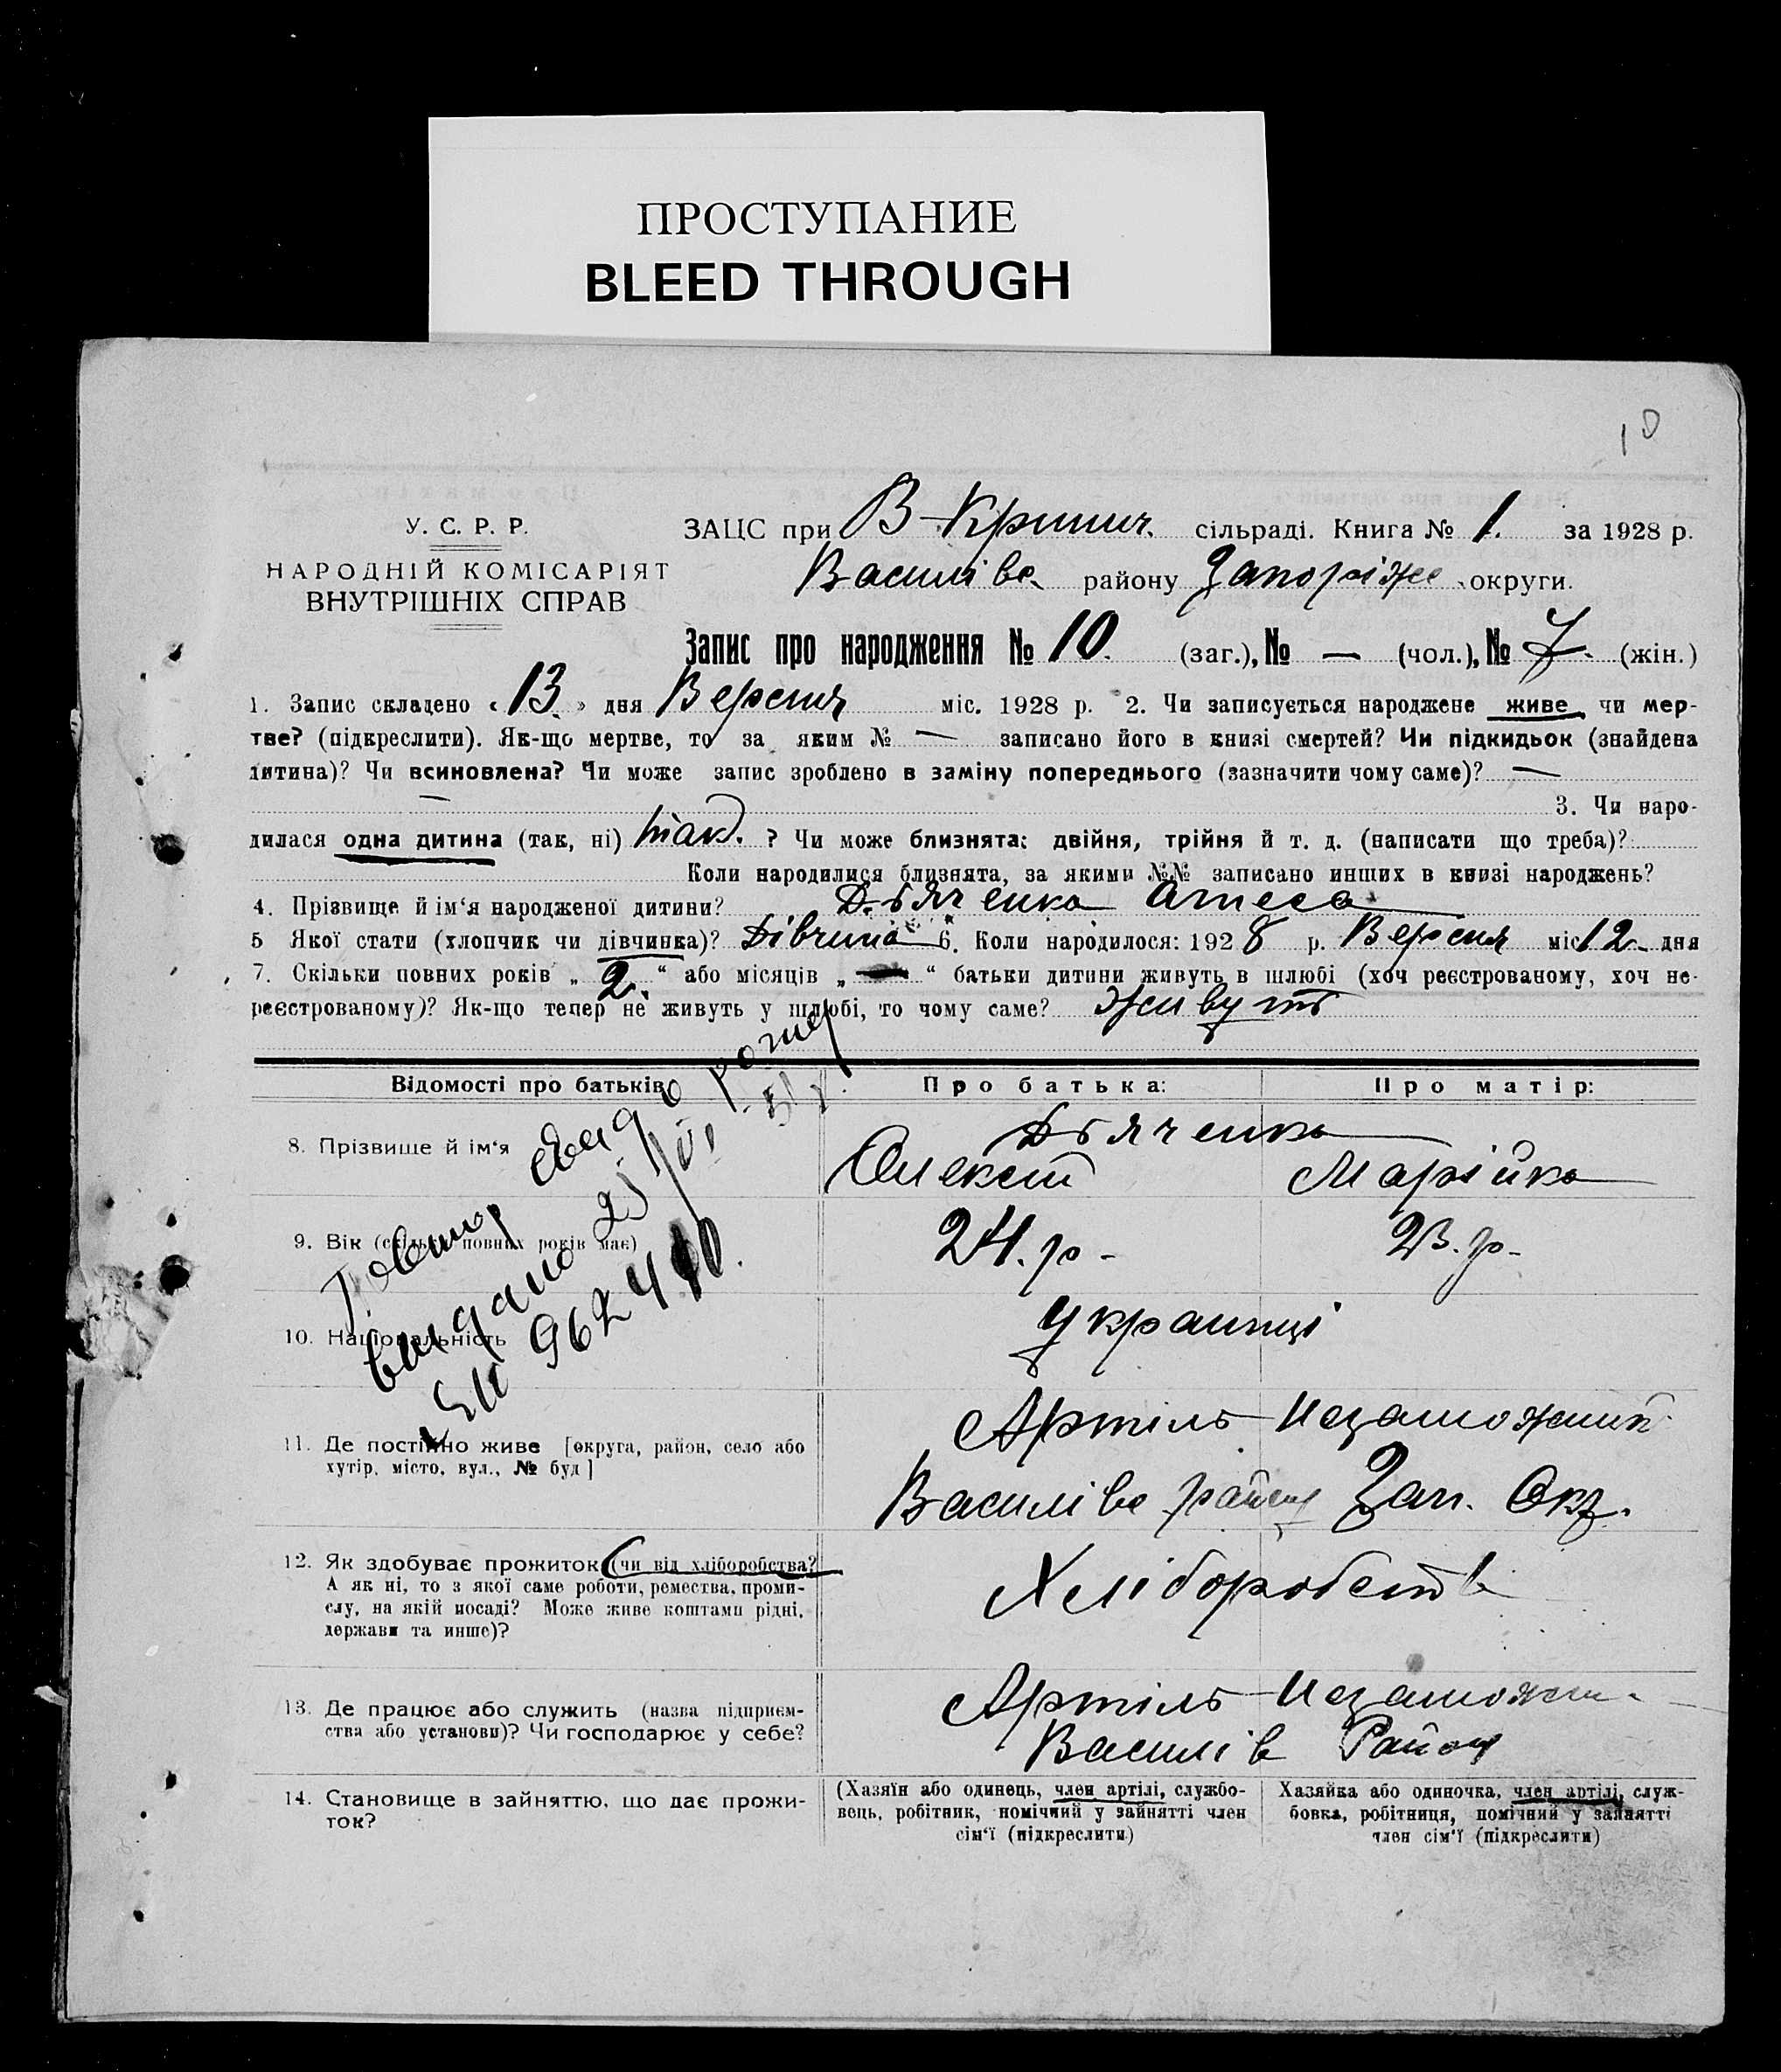 ПРОСТУПАНИЕ
BLEED THROUGH
10
У. С. Р. Р.
НАРОДНІЙ КОМІСАРІЯТ
ВНУТРІШНІХ СПРАВ
ЗАЦС при В-Кринич. сільраді. Книга № 1. за 1928 р.
Василівс. району Запоріжс. округи.
Запис про народження № 10. (заг.), № — (чол.), № 7. (жін.)
1. Запис складено « 13. » дня Вересня міс. 1928 р. 2. Чи записується народжене живе чи мер-
тве? (підкреслити). Як-що мертве, то за яким № — записано його в книзі смертей? Чи підкидьок (знайдена
дитина)? Чи всиновлена? Чи може запис зроблено в заміну попереднього (зазначити чому саме)? —
— 3. Чи наро-
дилася одна дитина (так, ні) так. ? Чи може близнята: двійня, трійня й т. д. (написати що треба)?
Коли народилися близнята, за якими №№ записано инших в книзі народжень?
4. Прізвище й ім‘я народженої дитини? Дьяченко
5 Якої стати (хлопчик чи дівчинка)? Дівчина 6. Коли народилося: 1928 р. Вересня міс 12 дня
7. Скільки повних років „ 2. “ або місяців „ — “ батьки дитини живуть в шлюбі (хоч реєстрованому, хоч не-
реєстрованому)? Як-що тепер не живуть у шлюбі, то чому саме? Живуть
Відомості про батьків Про батька: Про матір:
8. Прізвище й ім‘я Дьяченко
Олексій Марійка
9. Вік (скільки повних років має) 24. р- 23. р-
10. Національність Українці
11. Де постійно живе [округа, район, село або
хутір, місто, вул., № буд]
Артіль Незаможник
Василівс району Зап. Окр.
видано 25
962440
12. Як здобуває прожиток (чи від хліборобства?
А як ні, то з якої саме роботи, ремества, проми-
слу, на якій посаді? Може живе коштами рідні,
держави та инше)?
Хліборобств
13. Де працює або служить (назва підприєм-
ства або установи)? Чи господарює у себе?
Артіль Незаможн.
Василів Району
14. Становище в зайняттю, що дає прожи-
ток?
(Хазяїн або одинець, член артілі, службо-
вець, робітник, помічний у зайнятті член
сім‘ї (підкреслити)
Хазяйка або одиночка, член артілі, служ-
бовка, робітниця, помічний у зайнятті
член сім‘ї (підкреслити)